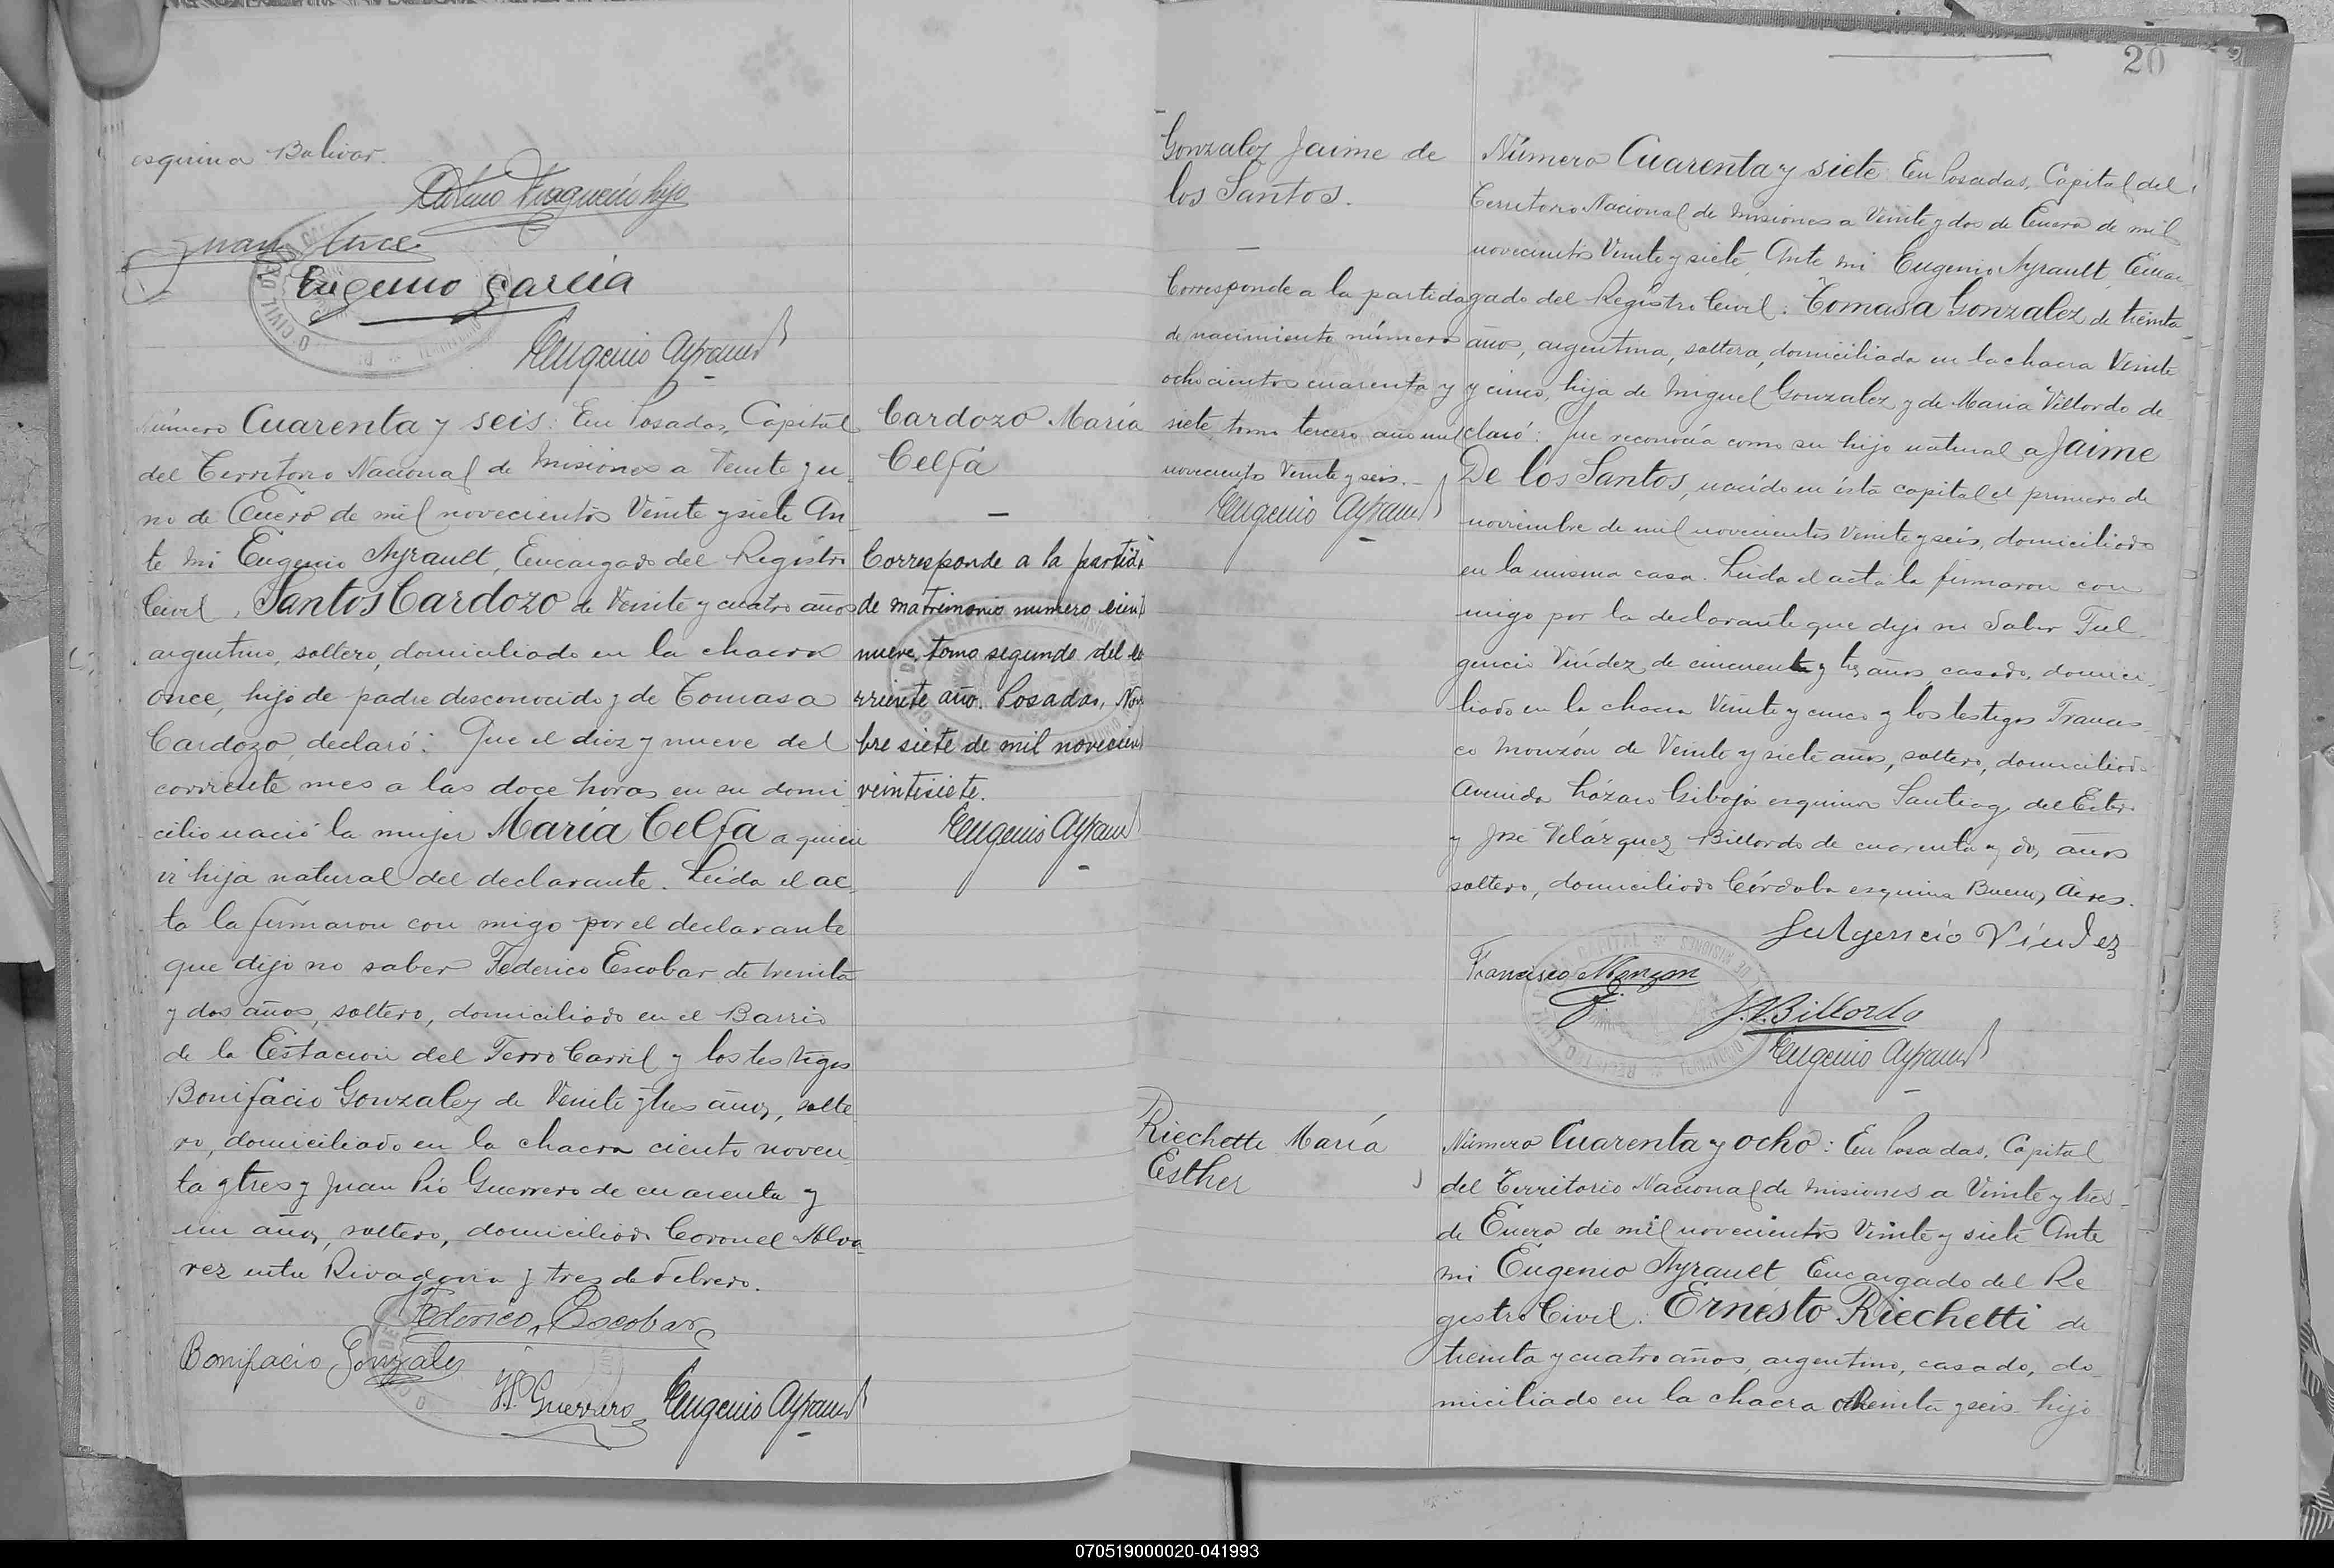 esquina Bolivar.
hijo
Juan
Eugenio Garcia
Eugenio Ayrault
Número Cuarenta y seis: En Posadas, Capital
del Territorio Nacional de Misiones a Veinte y u-
no de Enero de mil novecientos Veinte y siete An-
te mi Eugenio Ayrault, Encargado del Registro
Civil, Santos Cardozo de Veinte y cuatro años
argentino, soltero, domiciliado en la chacra
once, hijo de padre desconocido y de Tomasa
Cardozo, declaró: Que el diez y nueve del
corriente mes a las doce horas en su domi
cilio nació la mujer María Celfa a quien
vi hija natural del declarante. Leida el ac
ta la firmaron con migo por el declarante
que dijo no saber Federico Escobar de treinta
y dos años, soltero, domiciliado en el Barrio
de la Estacion del Ferro Carril y los testigos
Bonifacio Gonzalez de Veinte y tres años, solte
ro, domiciliado en la chacra ciento noven-
ta y tres y Juan Pío Guerrero de cuarenta y
un años, soltero, domiciliado Coronel Alva
rez entre Rivadavia y tres de Febrero.
Federico Escobar
Bonifacio Gonzales
J.P. Guerrero Eugenio Ayrault
Cardozo María
Celfa
Corresponde a la partida
de matrimonio numero cient
nueve, tomo segundo del co
rriente año. Posadas, Nov
bre siete de mil novecien
veintisiete.
Eugenio Ayrault
20
Gonzalez Jaime de
los Santos.
Corresponde a la partida
de nacimiento número
ochocientos cuarenta y
siete tomo tercero año mil
novecientos Veinte y seis.
Eugenio Ayrault
Número Cuarenta y siete: En Posadas, Capital del
Territorio Nacional de Misiones a Veinte y dos de Enero de mil
novecientos Veinte y siete, Ante mi Eugenio Ayrault, Encar-
gado del Registro Civil: Tomasa Gonzalez de treinta
años, argentina, soltera, domiciliada en la chacra Veinte
y cinco, hija de Miguel Gonzalez y de Maria Villordo de-
claró: Que reconocía como su hijo natural a Jaime
De los Santos, nacido en ésta capital el primero de
noviembre de mil novecientos Veinte y seis, domiciliado
en la misma casa. Leida el acta la firmaron con
migo por la declarante que dijo no Saber Ful-
gencio Viudez de cincuenta y tres años, casado, domici-
liado en la chacra Veinte y cinco y los testigos Francis-
co Monzón de Veinte y siete años, soltero, domiciliado
Avenida Lázaro Gibaja esquina Santiago del Estero
y José Velázquez Billordo de cuarenta y dos años
soltero, domiciliado Córdoba esquina Buenos Aires.
Fulgencio Viudez
Francisco Monzon
J.V. Billordo
Eugenio Ayrault
Riechetti María
Esther
Número Cuarenta y ocho: En Posadas, Capital
del Territorio Nacional de Misiones a Veinte y tres
de Enero de mil novecientos Veinte y siete Ante
mi Eugenio Ayrault Encargado del Re
gistro Civil: Ernesto Riechetti de
treinta y cuatro años, argentino, casado, do
miciliado en la chacra treinta y seis hijo
070519000020-041993